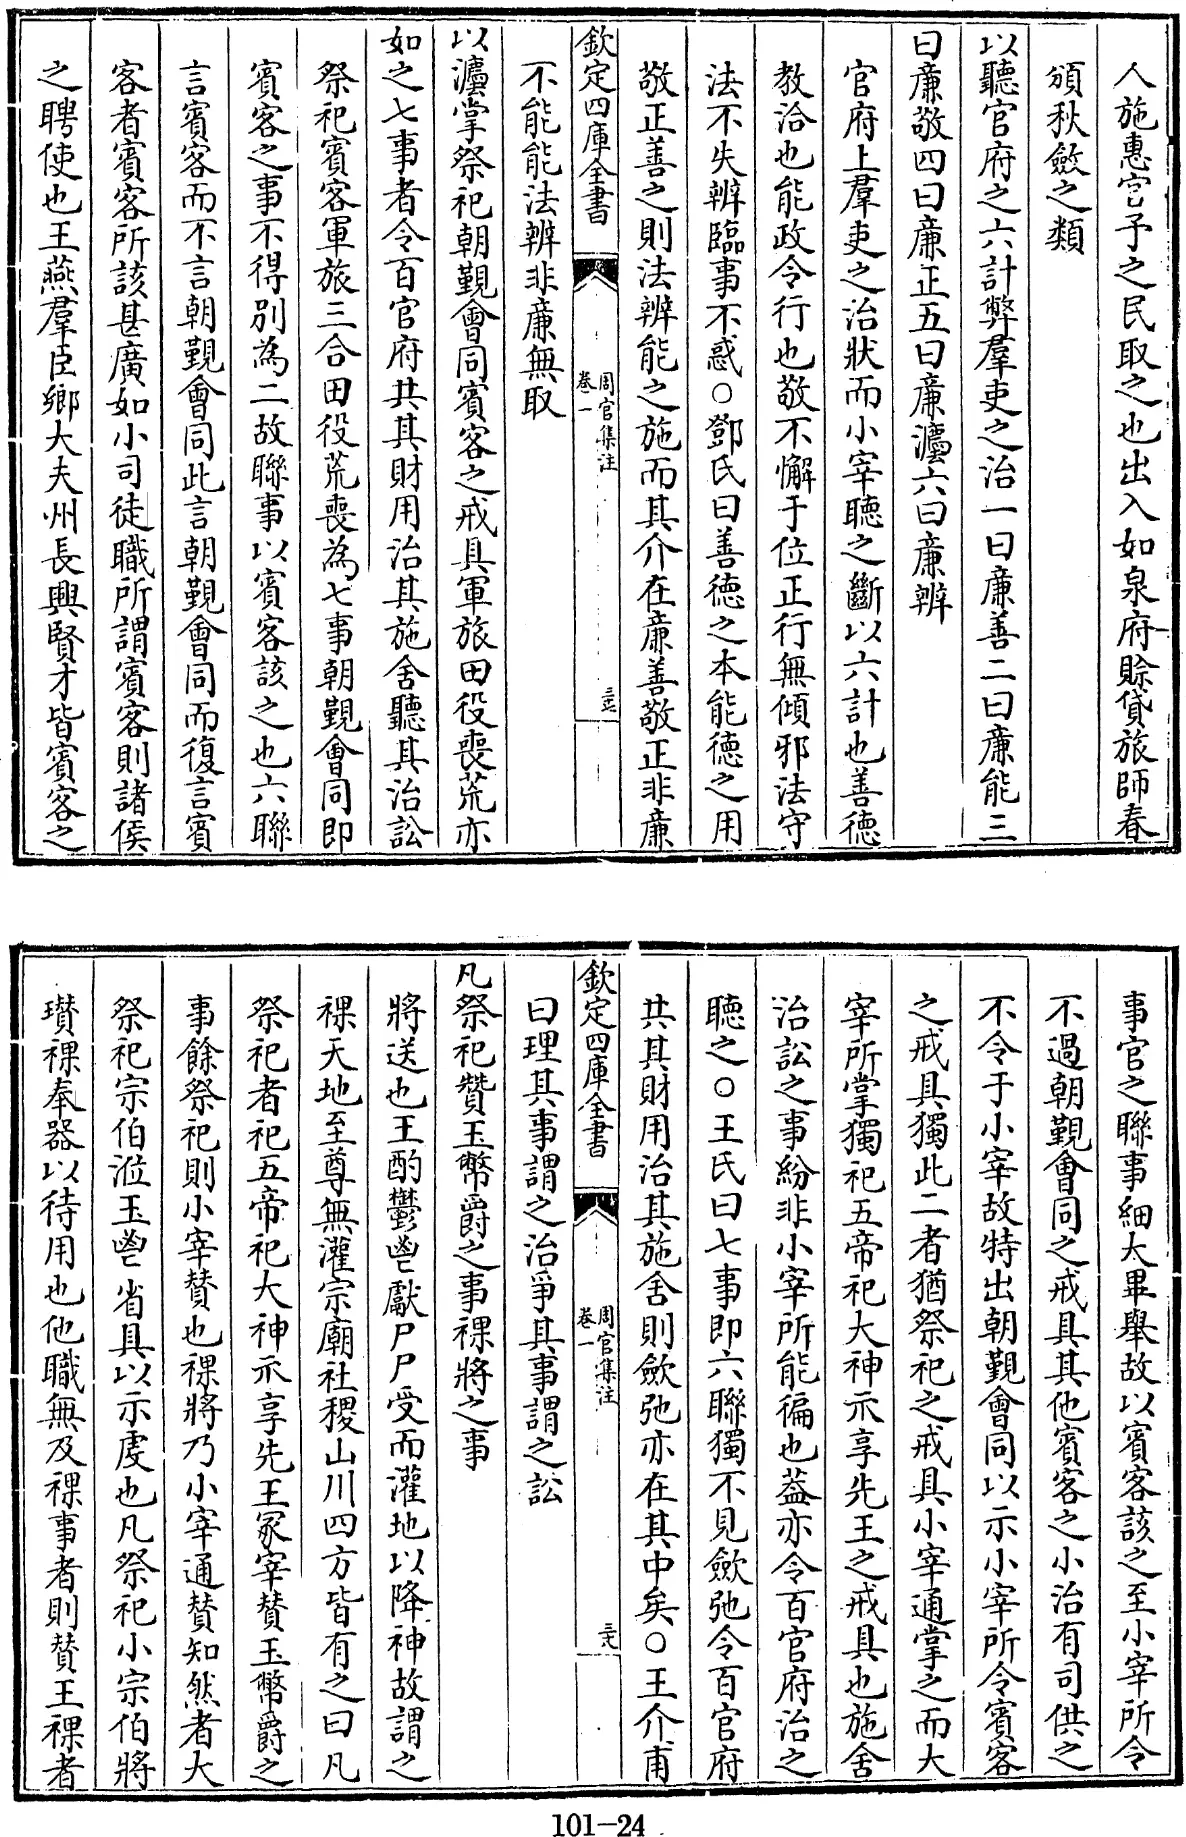 人施惠官予之民取之也出入如泉府賒貸旅師春
頒秋斂之類
以聽官府之六計弊羣吏之治一曰亷善二曰亷能三
曰亷敬四曰亷正五曰亷灋六曰亷辨
官府上羣吏之治狀而小宰聴之斷以六計也善徳
教洽也能政令行也敬不懈于位正行無傾邪法守
法不失辨臨事不惑○鄧氏曰善徳之本能徳之用
敬正善之則法辨能之施而其介在亷善敬正非亷
欽定四庫全書
周官集注
卷一
三七
不能能法辨非亷無取
以灋掌祭祀朝覲會同賓客之戒具軍旅田役喪荒亦
如之七事者令百官府共其財用治其施舍聽其治訟
祭祀賓客軍旅三合田役荒喪為七事朝覲會同即
賓客之事不得別為二故聯事以賓客該之也六聯
言賓客而不言朝覲會同此言朝覲會同而復言賓
客者賓客所該甚廣如小司徒職所謂賓客則諸侯
之聘使也王燕羣臣鄉大夫州長興賢才皆賓客之
事官之聯事細大畢舉故以賓客該之至小宰所令
不過朝覲會同之戒具其他賓客之小治有司供之
不令于小宰故特出朝覲會同以示小宰所令賓客
之戒具獨此二者猶祭祀之戒具小宰通掌之而大
宰所掌獨祀五帝祀大神示享先王之戒具也施舍
治訟之事紛非小宰所能徧也葢亦令百官府治之
聽之○王氏曰七事即六聯獨不見歛弛令百官府
共其財用治其施舍則歛弛亦在其中矣○王介甫
欽定四庫全書
周官集注
卷一
三八
曰理其事謂之治爭其事謂之訟
凡祭祀贊玉幣爵之事祼將之事
將送也王酌鬱鬯獻尸尸受而灌地以降神故謂之
祼天地至尊無灌宗廟社稷山川四方皆有之曰凡
祭祀者祀五帝祀大神示享先王冢宰賛玉幣爵之
事餘祭祀則小宰賛也祼將乃小宰通賛知然者大
祭祀宗伯涖玉鬯省具以示虔也凡祭祀小宗伯將
瓚祼奉器以待用也他職無及祼事者則賛王祼者
101-24